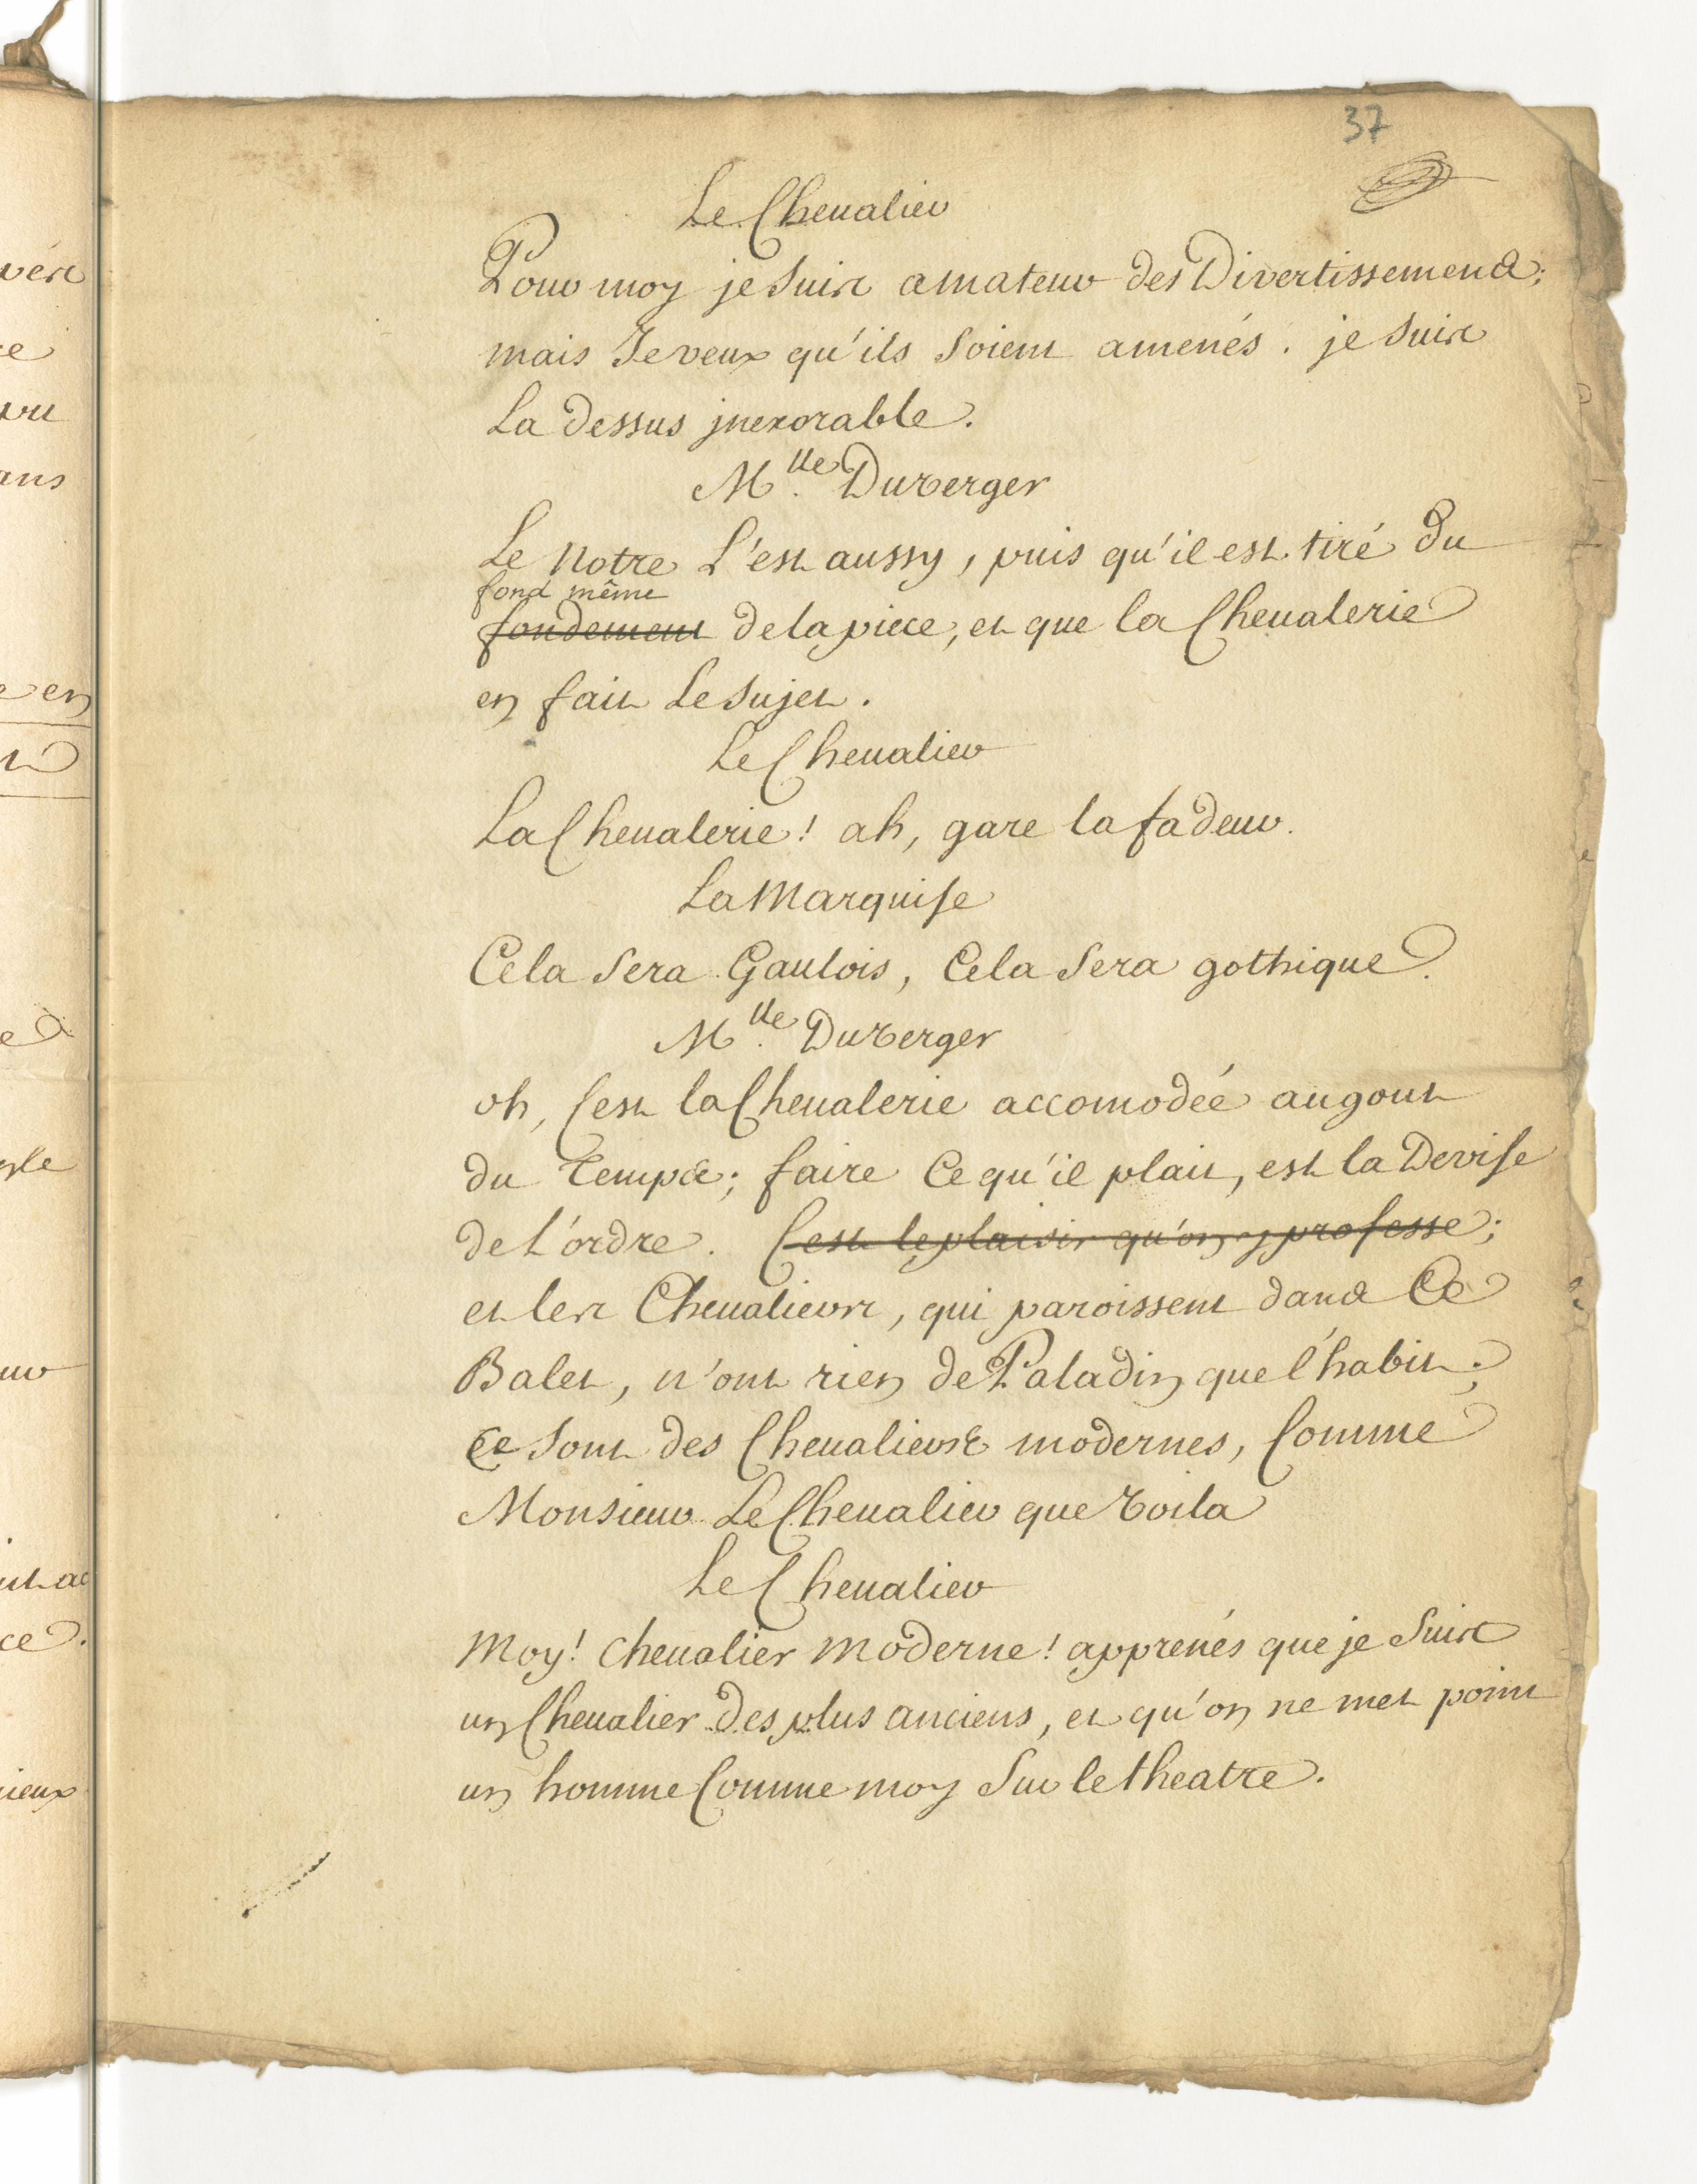 37
Le Chevalier
Pour moy je suis amateur des Divertissements;
mais Je veux qu'ils soient amenés. je suis
La dessus jnexorable.
Mlle. Duverger
Le notre L'est aussy, puis qu'il est tiré du
fond même
fondement de la piece, et que la Chevalerie
en fait Le sujet.
Le Chevalier
La Chevalerie! ah, gare la fadeur.
La Marquise
Cela sera Gaulois, Cela sera gothique.
Mlle. Duverger
oh, C'est la Chevalerie accomodée au gout
du temps; faire Ce qu'il plait, est la Devise
de L'ordre. C'est le plaisir qu'on y professe;
et les Chevaliers, qui paroissent dans Ce
Balet, n'ont rien de Paladin que l'habit;
Ce sont des Chevaliers modernes, Comme
Monsieur Le Chevalier que voila
Le Chevalier
Moy! Chevalier Moderne! apprenés que je suis
un Chevalier des plus anciens, et qu'on ne met point
un homme Comme moy sur le theatre.